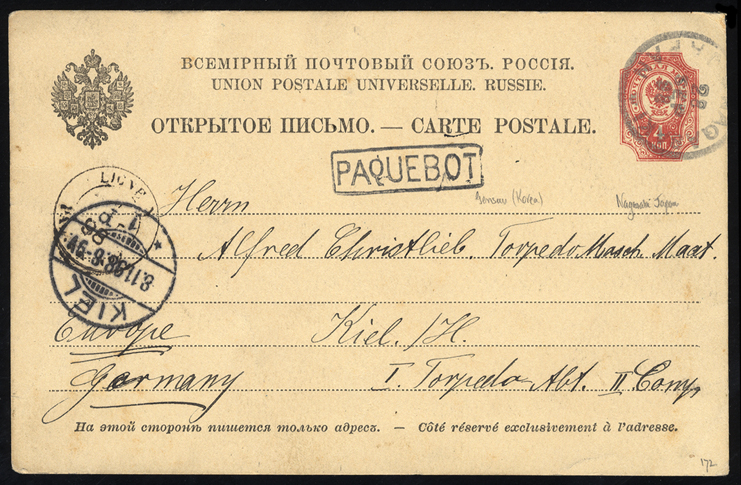 ВСЕМІРНЫЙ ПОЧТОВЫЙ СОЮЗЪ. РОССІЯ.
UNION POSTALE UNIVERSELLE. RUSSIE.
ОТКРЫТОЕ ПИСЬМО. — CARTE POSTALE.
PAQUEBOT
LIGNE
(Korea)
Nagasaki Japan
Herrn
Alfred Christlieb. Torpedo Masch. Maat.
KIEL
Europe Kiel. /H.
Germany I. Torpedo Abt. II Comp.
На этой сторонѣ пишется только адресъ. — Côté réservé exclusivement à l'adresse.
172